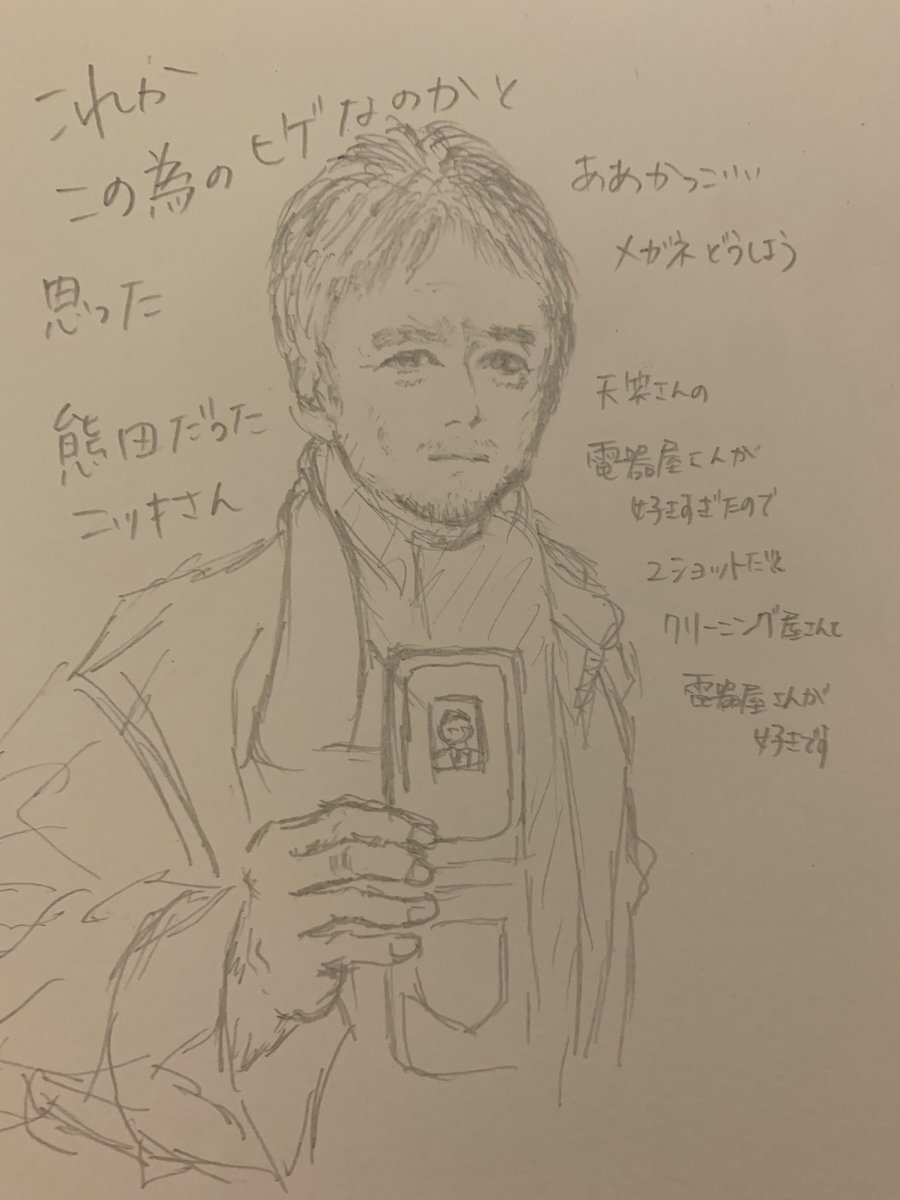 これか
この為のヒゲなのかと
思った
熊田だった
ニッキさん
ああかっこいい
メガネどうしよう
天栄さんの
電器屋さんが
好きすぎたので
2ショットだと
クリーニング屋さんと
電器屋さんが
好きです